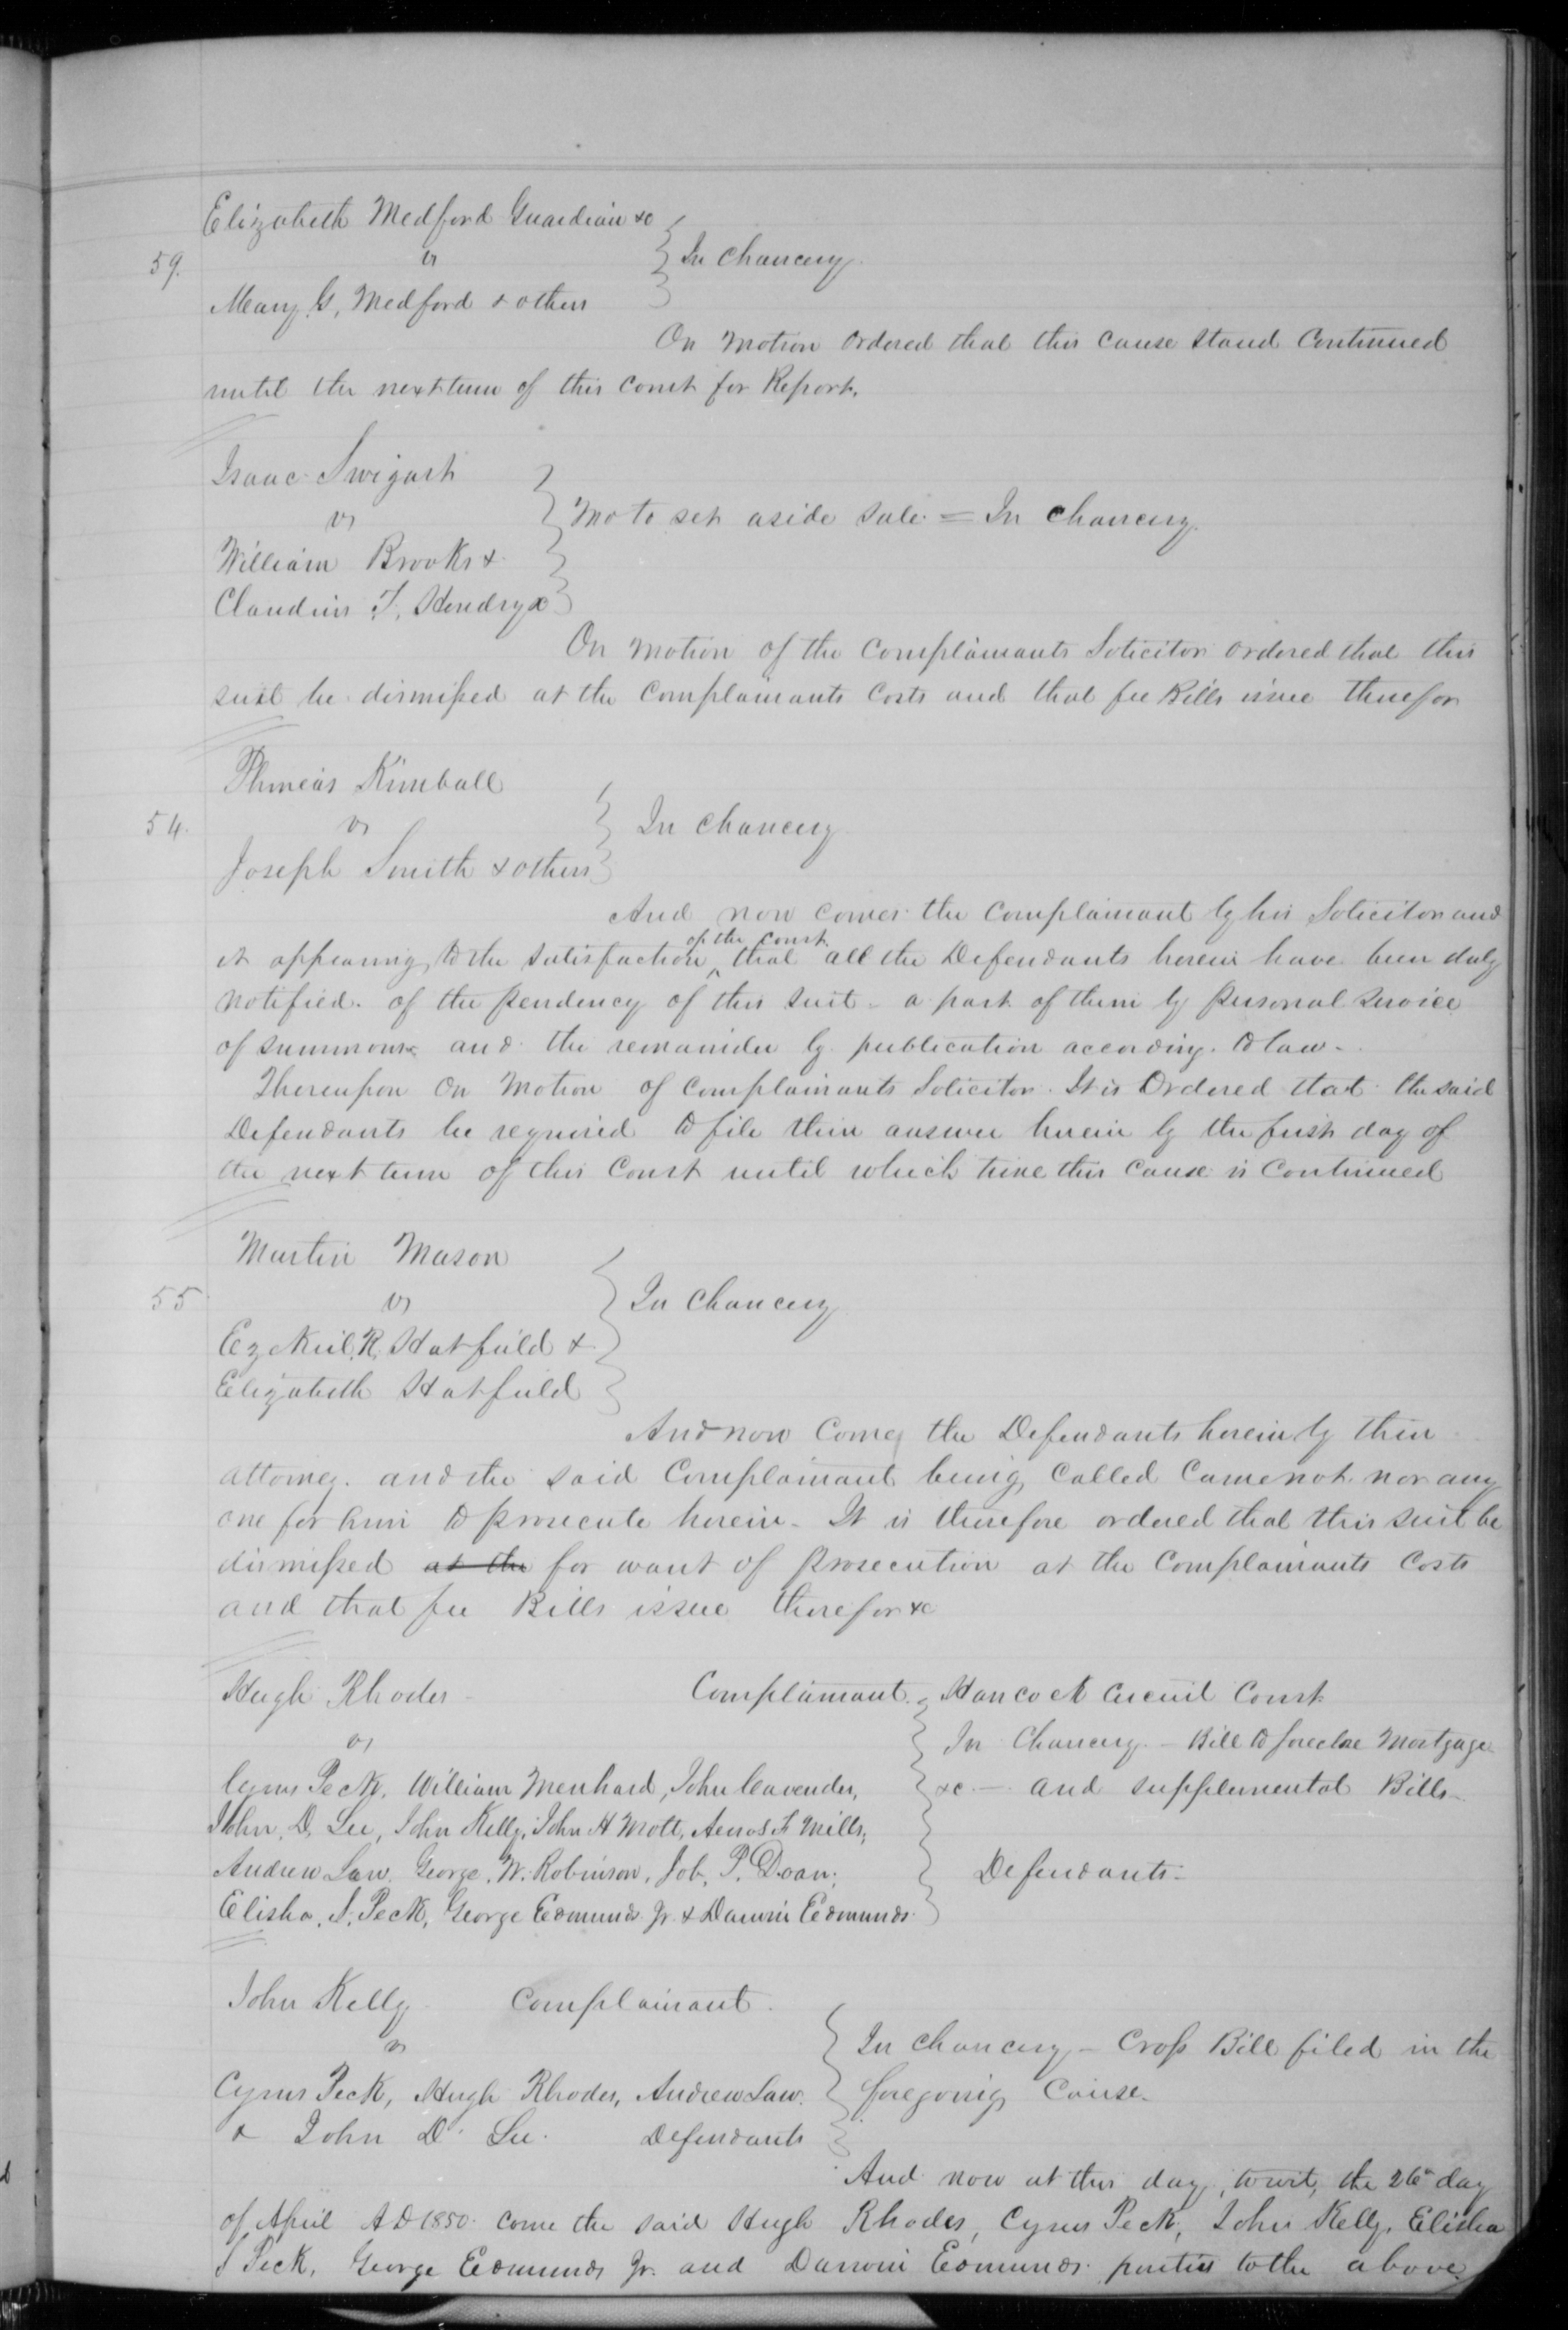 Elizabeth Medford Guardian &c
59. vs In Chancery.
Mary G. Medford & others
On Motion Ordered that this cause stand Continued
until the next term of this Court for Report.
Isaac Swigart
vs Mo to set aside Sale = In Chancery.
William Brooks &
Claudius T. Hendryx
On Motion of the Complainants Solicitor ordered that this
suit be dismissed at the Complainants Costs and that fee Bills issue therefor
Phineas Kimball
54. vs In Chancery
Joseph Smith & others
And now comes the Complainant by his Solicitor and
it appearing to the satisfaction ^of the Court that all the Defendants herein have been duly
notified of the pendency of this suit - a part of them by personal service
of summons and the remainder by publication according to law -
Thereupon On Motion of Complainants Solicitor. It is Ordered that the said
Defendants be required to file their answer herein by the first day of
the next term of this Court until which time this Cause is Continued
Martin Mason
55 vs In Chancery
Ezekiel R. Hatfield &
Elizabeth Hatfield
And now Comes the Defendants herein by their
attorney. and the said Complainant being Called Came not nor any
one for him to prosecute herein. It is therefore ordered that this suit be
dismissed at the for want of prosecution at the Complainants Costs
and that fee Bills issue therefor &c
Hugh Rhodes Complainant. Hancock Circuit Court
vs In Chancery - Bill to foreclose Mortgage
Cyrus Peck, William Menhard, John Cavender, &c - and supplemental Bills -
John D. Lee, John Kelly, John H Mott, Amos F. Mills,
Andrew Law, George W. Robinson, Job P. Doan, Defendants -
Elisha S. Peck, George Edmunds Jr. & Darwin Edmunds.
John Kelly Complainant.
vs In Chancery - Cross Bill filed in the
Cyrus Peck, Hugh Rhodes, Andrew Law. foregoing Cause.
& John D. Lee. Defendants
And now at this day, towit, the 26th day
of April AD 1850. come the said Hugh Rhodes, Cyrus Peck, John Kelly, Elisha
S Peck, George Edmunds Jr. and Darwin Edmunds. parties to the above